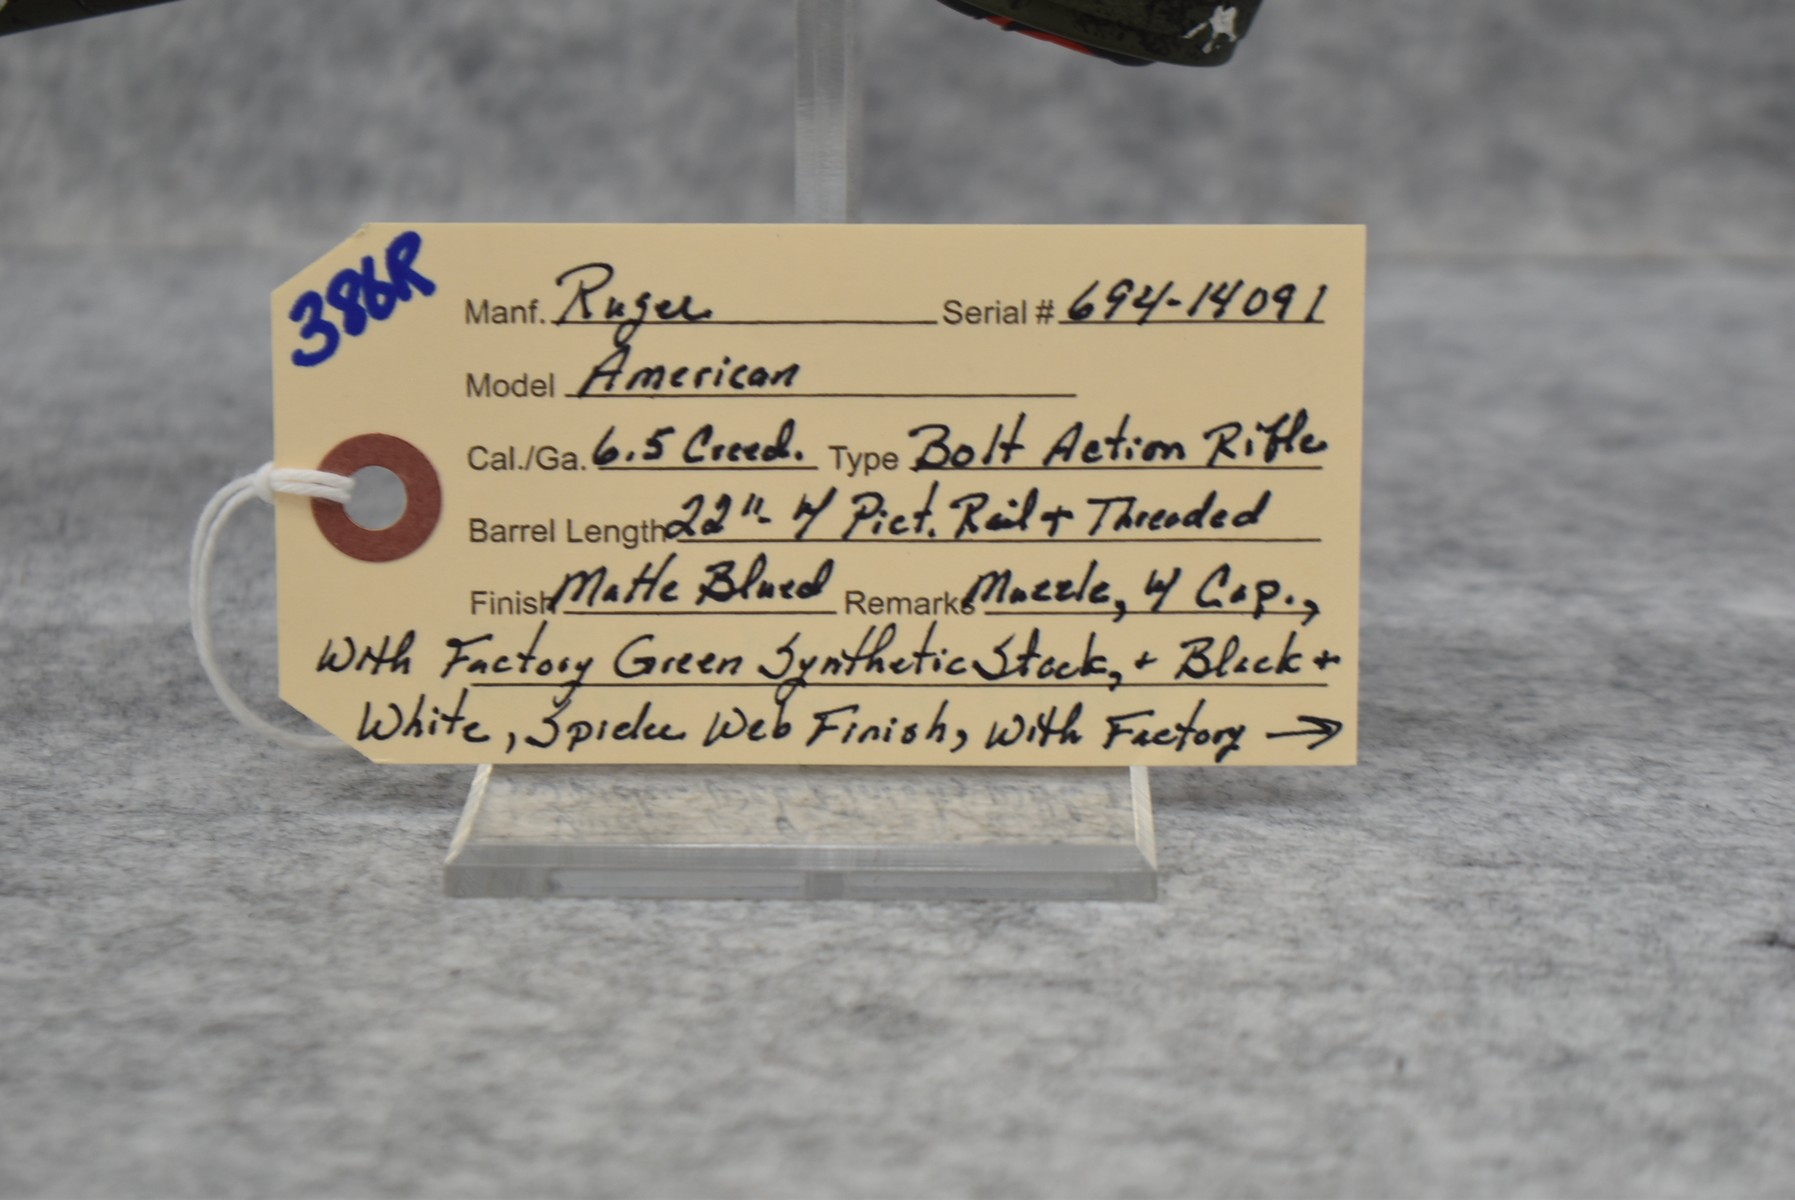 386R
Manf. Ruger Serial # 694-14091
Model American
Cal./Ga. 6.5 Creed. Type Bolt Action Rifle
Barrel Length 22"- w/ Pict. Rail + Threaded
Finish Matte Blued Remarks Muzzle, w/ Cap.,
With Factory Green Synthetic Stock, + Black +
White, Spider Web Finish, With Factory →